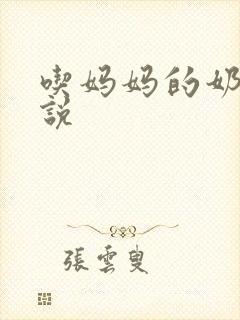 喫妈妈的奶
說
張雲叟